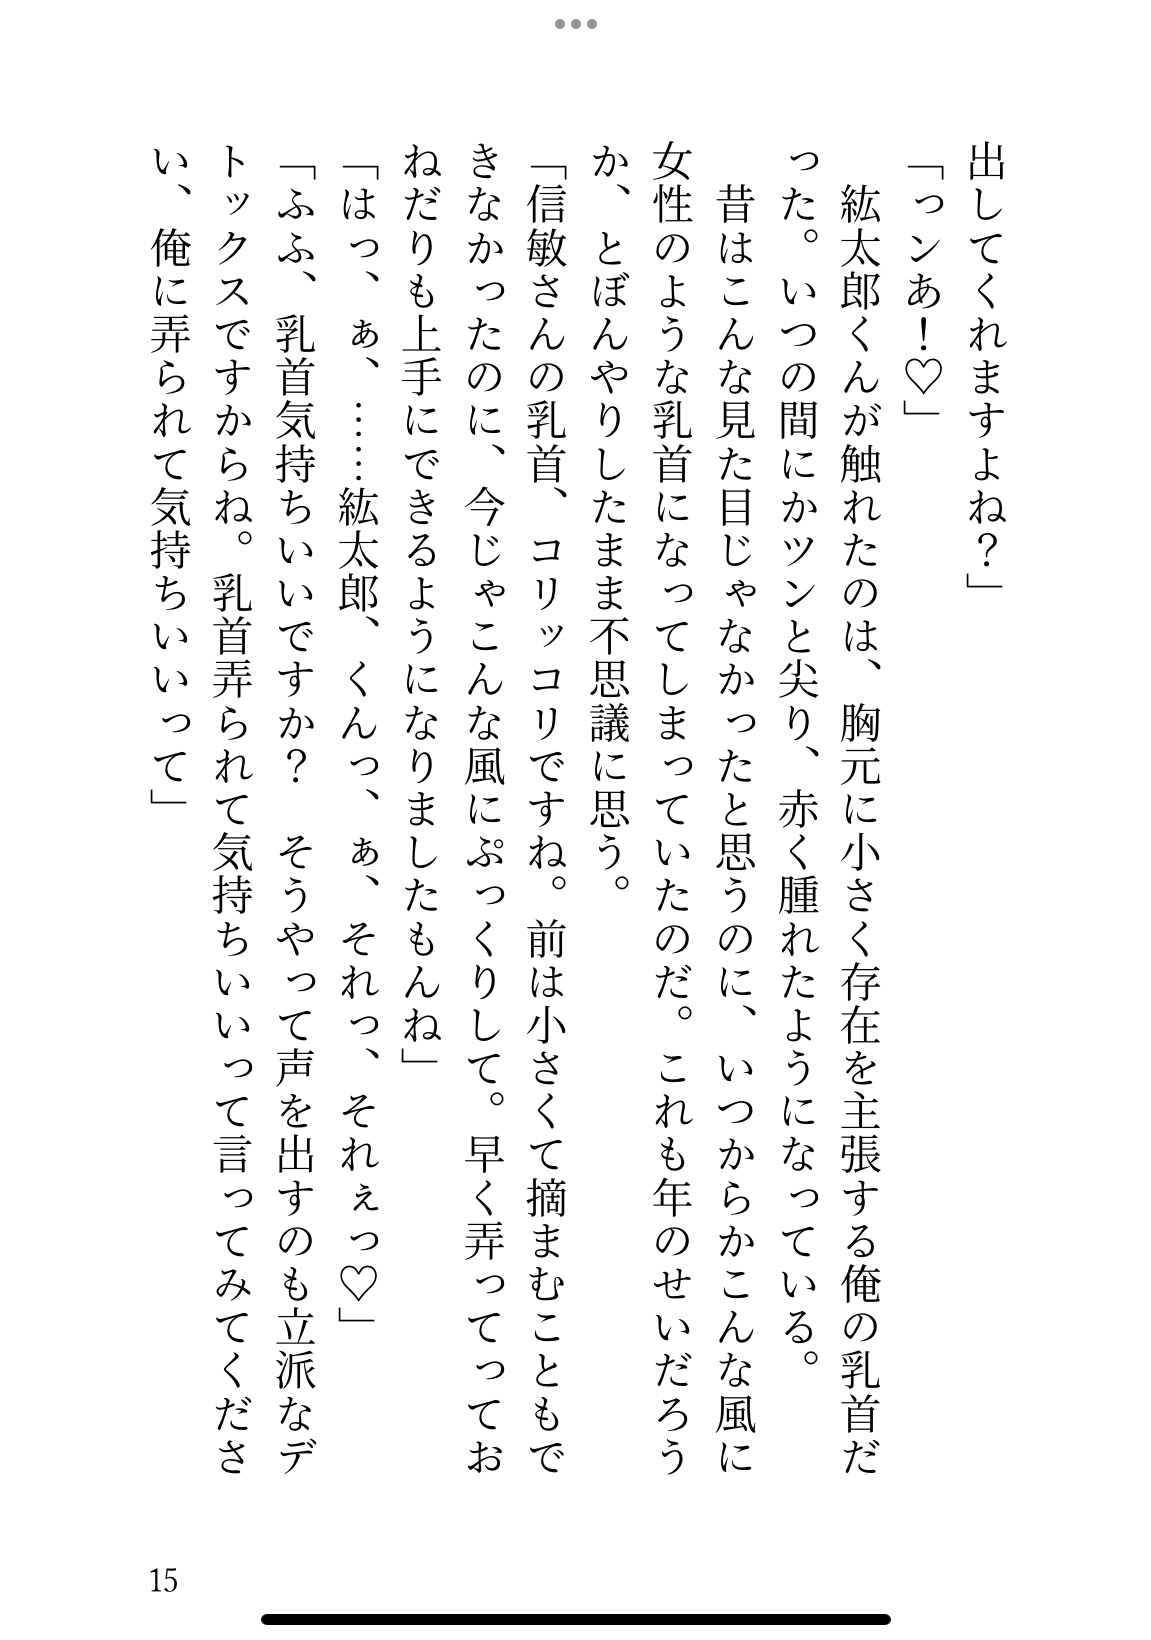 出してくれますよね？」
「っンあ！♡」
　紘太郎くんが触れたのは、胸元に小さく存在を主張する俺の乳首だ
った。いつの間にかツンと尖り、赤く腫れたようになっている。
　昔はこんな見た目じゃなかったと思うのに、いつからかこんな風に
女性のような乳首になってしまっていたのだ。これも年のせいだろう
か、とぼんやりしたまま不思議に思う。
「信敏さんの乳首、コリッコリですね。前は小さくて摘まむこともで
きなかったのに、今じゃこんな風にぷっくりして。早く弄ってってお
ねだりも上手にできるようになりましたもんね」
「はっ、ぁ、……紘太郎、くんっ、ぁ、それっ、それぇっ♡」
「ふふ、乳首気持ちいいですか？　そうやって声を出すのも立派なデ
トックスですからね。乳首弄られて気持ちいいって言ってみてくださ
い、俺に弄られて気持ちいいって」
15